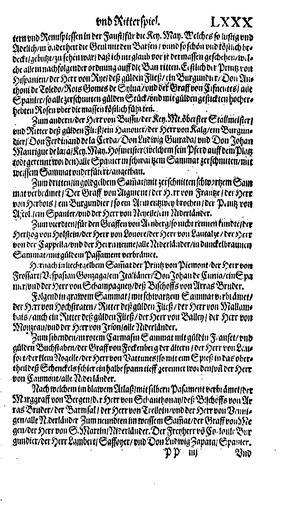 vnd Ritterspiel. LXXX
tern vnd Rennspiessen in der Faust/für der Key. May. Welches so lustig vnd
Adelich/ von derhert die Geul mit den Barsen/ vnd so schön vnd köstlich be-
deckt/gebutzt/zu sehen war/ daß ich nit glaub
che allein nachfolgender ordnung auff die Ban ritten. Erstlich der Printz von
Hispanien/der Herr von Rye/deß gülden Fließ/ ein Burgundier/ Don An-
thoni de Toledo/Rois Gomes de Sylua/vnd der Graff von Cifuentes/ alle
Spanier/so alle zerschnitten gülden Stück/vnd mit gülden gestickten hocher-
hebten Rosen
Zum andern/der Herr von Bussu/der Key. Mt. öberster Stallmeister/
vnd Ritter deß gülden Fließ/ein Hanouier/der Herr von Kalg/ein Burgun-
dier/Don Ferdinand de la Cerda/Don Ludwig Guirada/vnd Don Johan
Manrique de Lara/Key. May. Hofmeister/welchem sein Pferd auff dem Platz
todt gerent worden/alle Spanier in schwartzem Sammat zerschnitten/mit
weissem Sammat
Zum dritten/in goldgelbem Sammat/mit zerschnitten schwartzem Sam-
mat verbrämet/ Der Graff von Aigmont/ der Herr von Frantze/ der Herr
von Herbois/ ein Burgundier/ so ein Arm entzwey brochen/ der Printz von
Ascol/ein Spanier/vnd der Herr von Noyelle/ein Niderländer.
Zum vierten/für den Graffen von Arnberg/
Hertzog von Holstein/der Herr von Bouor/der Herr von Lautalye/ der Herr
von der Cappella/vnd der Herr /alle Niderländer/in dunckelbraunen
Sammat/mit güldem Passament verbrämet.
Hernach in leebfarbem Sammat der Printz von Piemont/der Herr von
Trossart/Vespasian Gonzaga/ein Italiäner/Don Johan de Cunia/ein Spa-
nier/vnd der Herr von Schampagney/deß Bischoffs von Arras Bruder.
Folgend in grawem Sammat/mit schwartzem Sammat verbrämet/
der Herr von Hochstraten/ Ritter deß gülden Fließ/ der Herr von Mallam-
bais/ auch ein Ritter deß gülden Fließ/ der Herr von Balley/ der Herr von
Monzeau/vnd der Herr von Iron/alle Niderländer.
Zum siebenden/in rotem Carmasin Sammat mit gülden Fransen/ vnd
gülden Buchstaben/der Graff von Feckenberg der älter/ der Herr von Lu-
/der klein Nogelle/der Herr von Vattunes/so mit eim Spieß in das ober-
theil deß Schenckels schier ein halbe spann tieff gerennet worden/vnd der Herr
von Caumont/alle Niderländer.
Nach welchem in blawem Atlaß/mit silbern Passament verbrämet/der
Marggraff von Bergen/der Herr von Schanthonay/deß Bischoffs von Ar-
ras Bruder/ der Barmsal/ der Herr von Trelein/vnd der Herr von Venni-
gen/alle Niderländer. Zum neundten im weissem Sammat/ der Graff von Me-
gen/der Herr von S. Martin/Niderländer. Der Freyherr von Co-louse Bur-
gundier/der Herr Lambert/ Saffoyer/ vnd Don Ludwig Zapata/ Spanier.
PP iiij Vnd